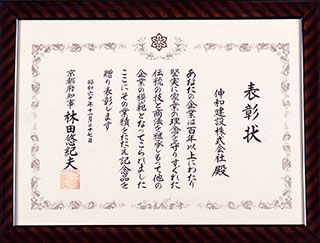 表彰状
伸和建設株式会社 殿
あなたの企業は百年以上にわたり
堅実に家業の理念を守りすぐれた
伝統の技と商法を継承しもって他の
企業の模範となってこられました
ここにその業績をたたえ記念品を
贈り表彰します
昭和六十年十一月二十七日
京都府知事 林田悠紀夫